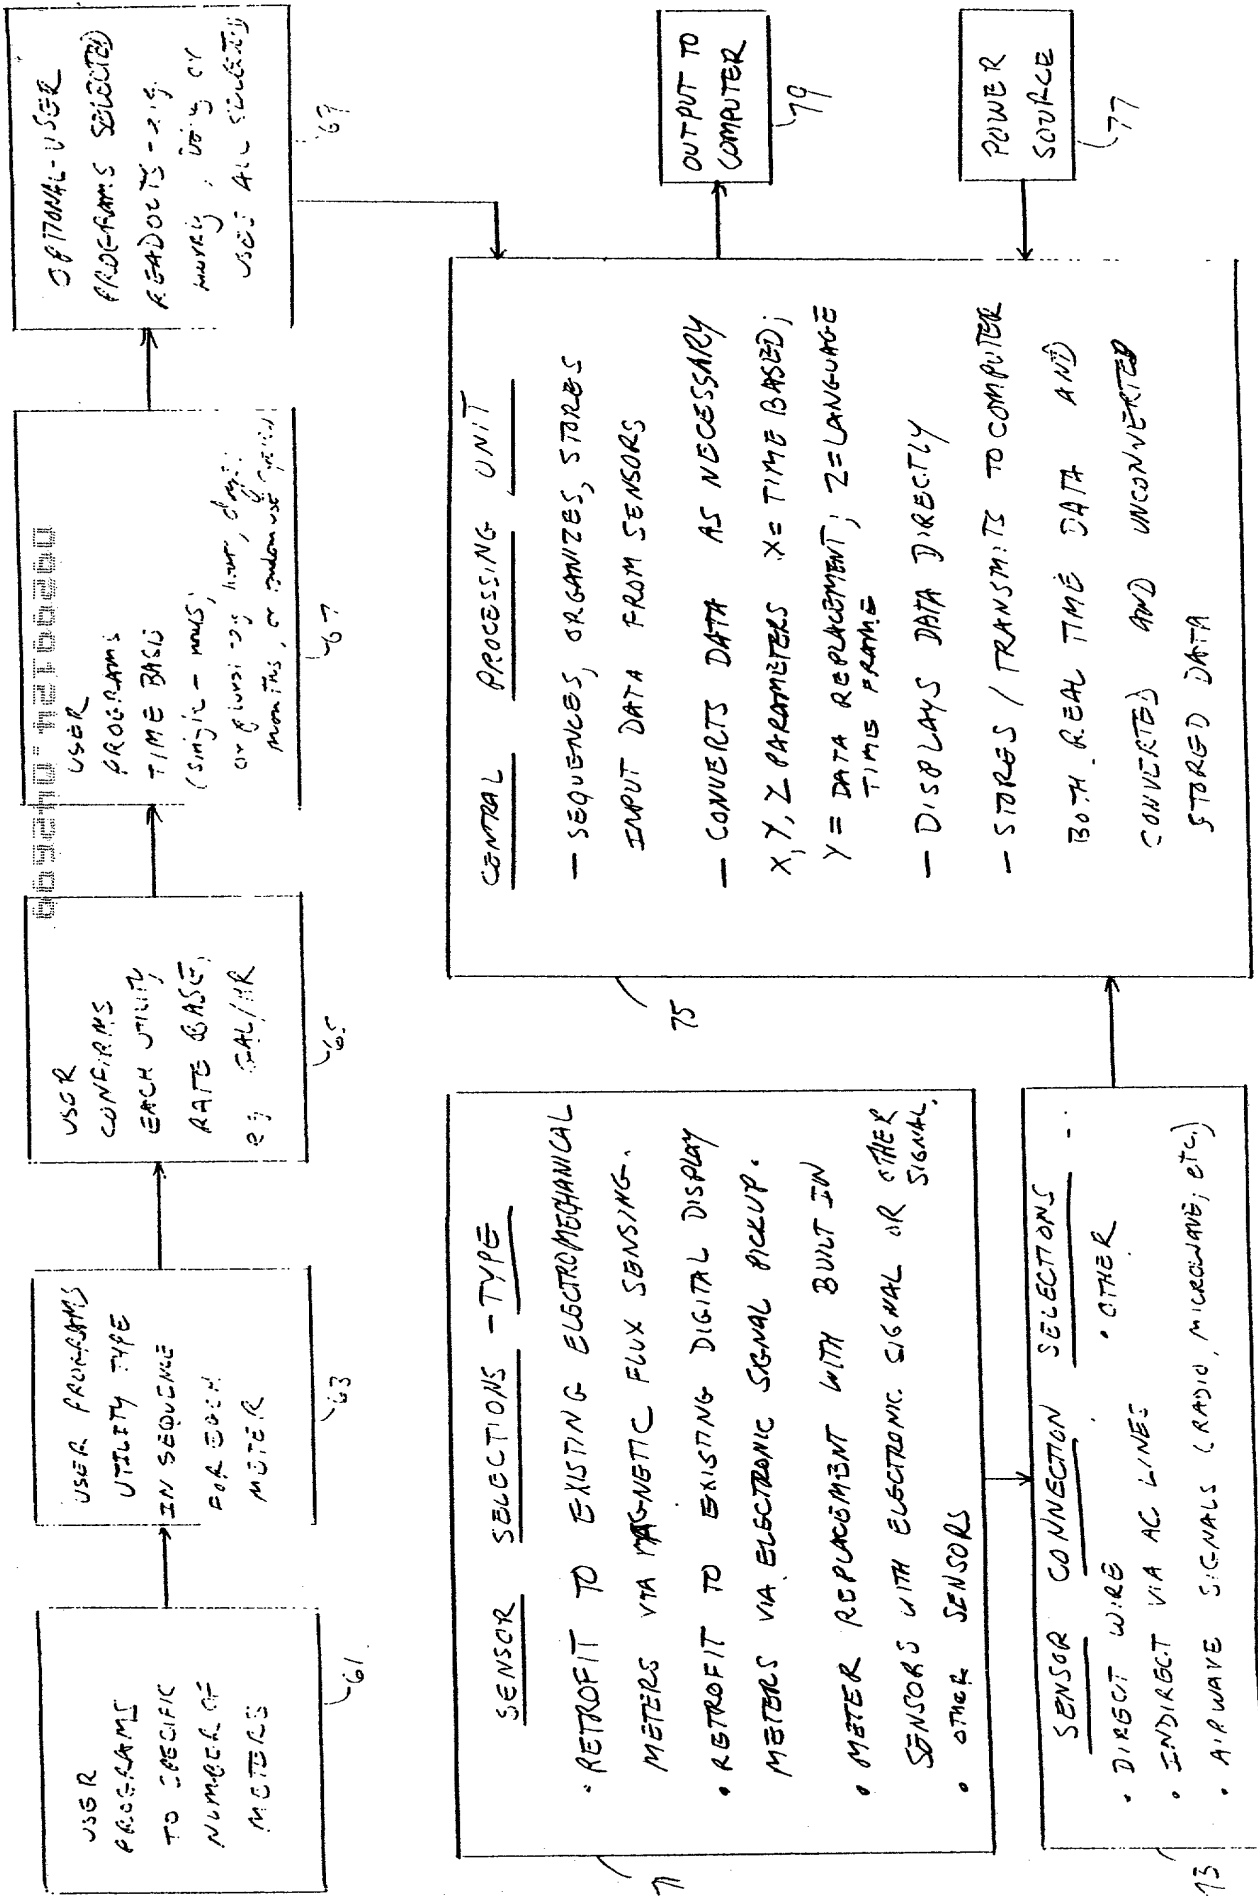 USER
PROGRAMS
TO SPECIFIC
NUMBER OF
METERS
61
USER PROGRAMS
UTILITY TYPE
IN SEQUENCE
FOR EACH
METER
63
USER
CONFIRMS
EACH UTILITY
RATE BASE,
eg GAL/HR
65
USER
PROGRAMS
TIME BASE
(single - hours;
or plural eg hour, days,
months, or random use
67
OPTIONAL-USER
PROGRAMS SELECTED
READOUTS - e.g.
hourly, daily or
USES ALL SELECTED
69
SENSOR SELECTIONS - TYPE
• RETROFIT TO EXISTING ELECTROMECHANICAL
METERS VIA MAGNETIC FLUX SENSING.
• RETROFIT TO EXISTING DIGITAL DISPLAY
METERS VIA ELECTRONIC SIGNAL PICKUP.
• METER REPLACEMENT WITH BUILT IN
SENSORS WITH ELECTRONIC SIGNAL OR OTHER
SIGNAL.
• OTHER SENSORS
71
SENSOR CONNECTION SELECTIONS
• DIRECT WIRE • OTHER
• INDIRECT VIA AC LINES
• AIRWAVE SIGNALS (RADIO, MICROWAVE, etc.)
73
CENTRAL PROCESSING UNIT
— SEQUENCES, ORGANIZES, STORES
INPUT DATA FROM SENSORS
— CONVERTS DATA AS NECESSARY
X, Y, Z PARAMETERS X = TIME BASED;
Y = DATA REPLACEMENT; Z = LANGUAGE
TIME FRAME
— DISPLAYS DATA DIRECTLY
— STORES / TRANSMITS TO COMPUTER
BOTH REAL TIME DATA AND
CONVERTED AND UNCONVERTED
STORED DATA
75
OUTPUT TO
COMPUTER
79
POWER
SOURCE
77